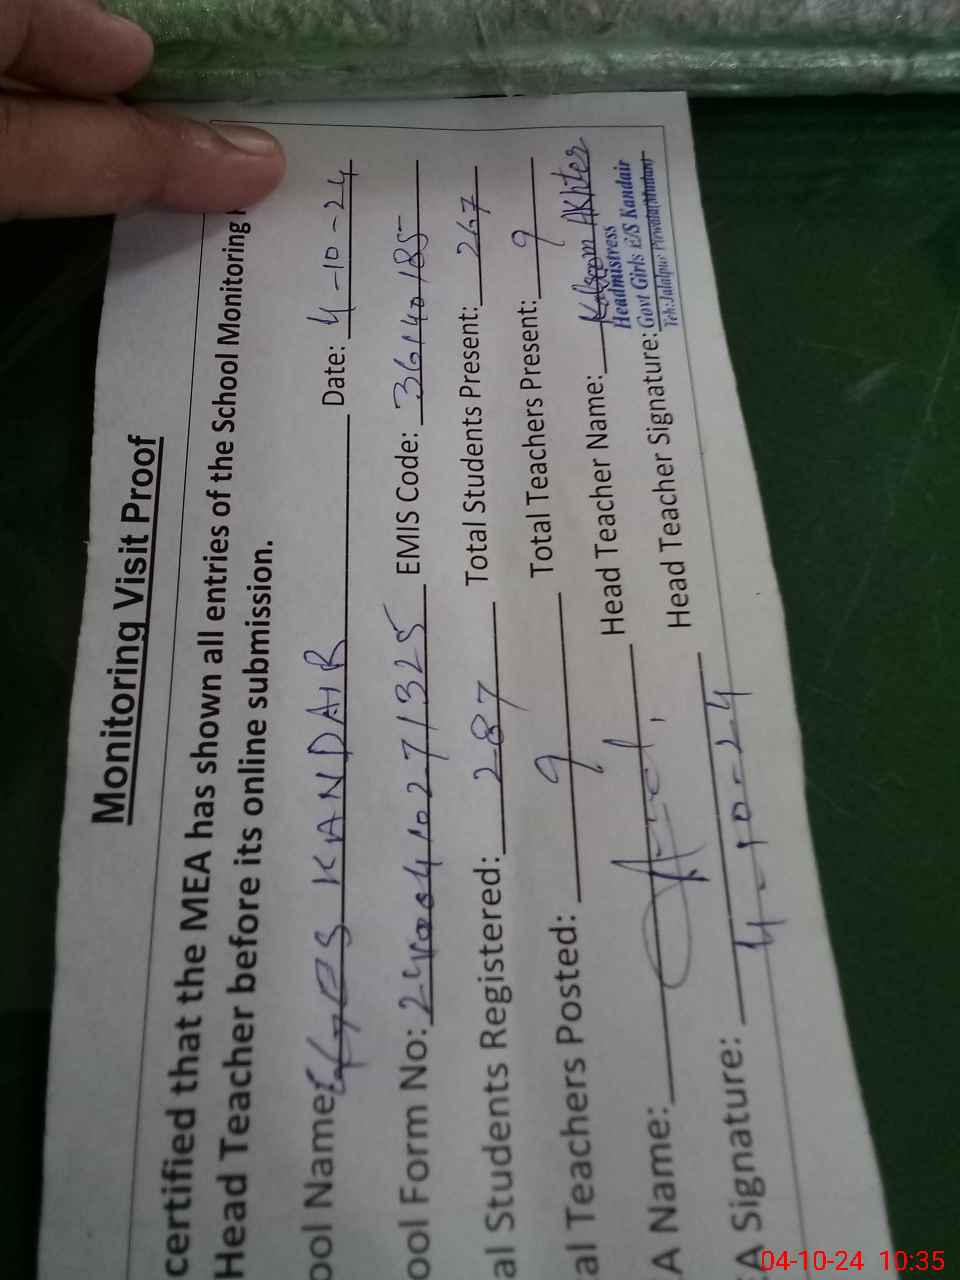 Monitoring Visit Proof
certified that the MEA has shown all entries of the School Monitoring
Head Teacher before its online submission.
ool Name: GGES KANDAIR Date: 4-10-24
ool Form No: EMIS Code: 36140185
al Students Registered: 287 Total Students Present: 267
al Teachers Posted: 9 Total Teachers Present: 9
A Name: Head Teacher Name: Kalsoom Akhter
A Signature: 4-10-24 Head Teacher Signature:
Headmistress
Govt Girls E/S Kandair
Teh:Jalalpur Pirwala(Multan)
04-10-24 10:35